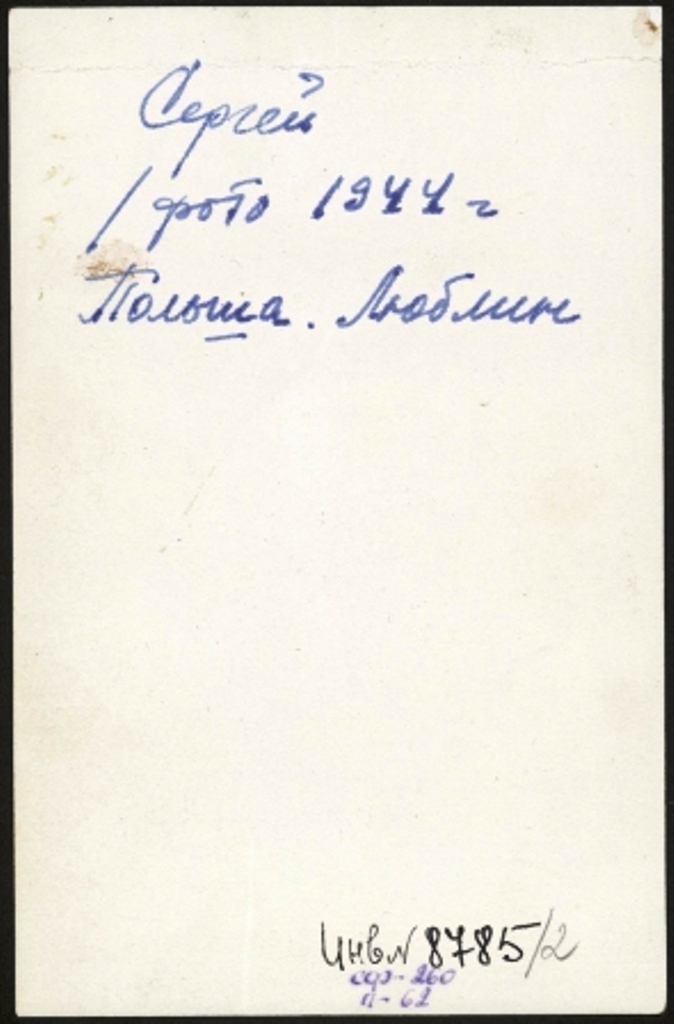 Сергей
/ фото 1944 г
Польша. Люблин
Инв № 8785/2
сф-260
п-62